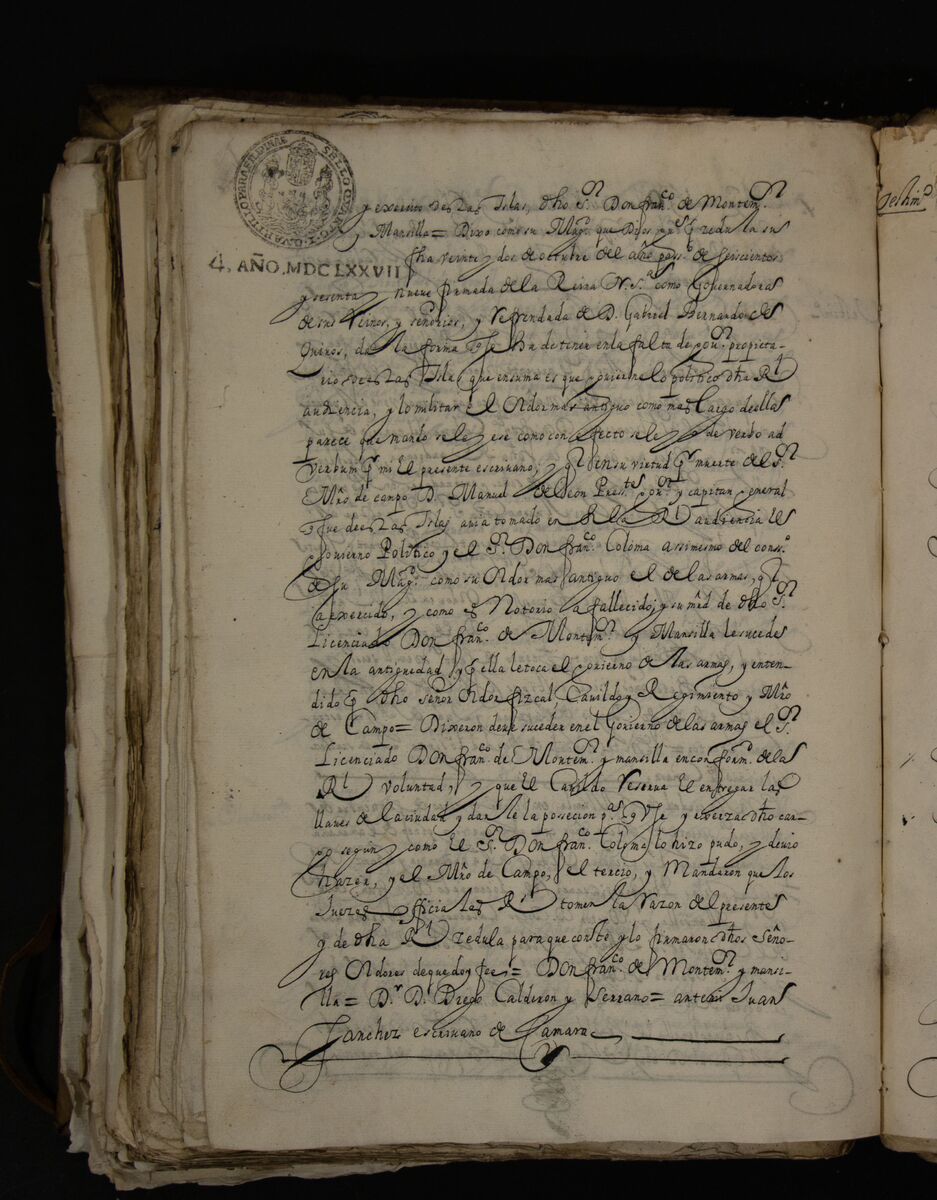 SELLO QVARTO VN QVARTILLO
4, AÑO, MDCLXXVII
y exercito destas Islas, dho Sr. Don franco. de Montemr.
y Mansilla = Dixo como su Magd. que Dios gue. por zedula su
fha veinte y dos de octubre del año pasdo. de seiscientos
y sesenta y nueve firmada de la Reina Na. Sa. como Governadora
de sus Reinos, y señorios, y refrendada de D. Gabriel Bernardo de
Quiros, da la forma que se ha de tener en la falta de gour. propieta-
rios destas Islas que en suma es que govierne lo politico dha Rl
audiencia, y lo militar el Oidor mas antiguo como mas largo de ella
parece que mando se leyese como con efecto se leyo de verbo ad
verbum por mi el presente escriuano, y que en su virtud por muerte del Sr.
Mro de campo D. Manuel de Leon Preste. gour. y capitan general
que fue destas Islas auia tomado en si la Rl audiencia el
govierno Politico y el Sr. Don franco. Coloma assimesmo del conso.
de su Magd. como su Oidor mas antiguo el de las armas, que
a exercido, y como es Notorio a fallecido, y su mrd de dho Sr.
Licenciado Don franco. de Montemr. y Mansilla le sucede
en la antiguedad y por ella le toca el govierno de las armas, y enten-
dido por dho señor Oidor fizcal, Cavildo y Regimiento y Mro
de Campo = Dixeron deve suceder en el Govierno de las armas el Sr.
Licenciado Don franco. de Montemr. y mansilla en conformd. de la
Rl voluntad, y que el Cavildo reserua el entregar las
llaves de la ciudad y darle la posecion pa. que vse y exerza dho car-
go segun y como el Sr. Don franco. Coloma lo hizo pudo, y devio
hazer, y el Mro de Campo, el tercio, y Mandaron que los
Juezes officiales Rs tomen la razon del presente
y de dha Rl zedula para que conste y lo firmaron dhos Seño-
res Oidores de que doy fee = Don franco. de Montemr. y mansi-
lla = Dr. D. Diego Calderon y Serrano = antemi Juan
Sanchez escriuano de Camara